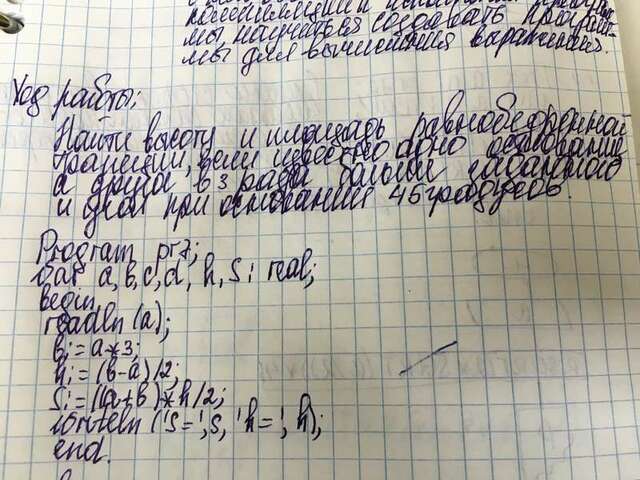 мы научиться создавать програм-
мы для вычисления выражений.
Ход работы:
Найти высоту и площадь равнобедренной
трапеции, если известно одно основание
а другая в 3 раза больши заданного
и угол при основании 45 градусов.
Program pr7;
Var a, b, c, d, h, S: real;
begin
readln (a);
b:=a*3;
h:=(b-a)/2;
S:=(a+b)*h/2;
writeln ('S=', S, 'h=', h);
end.